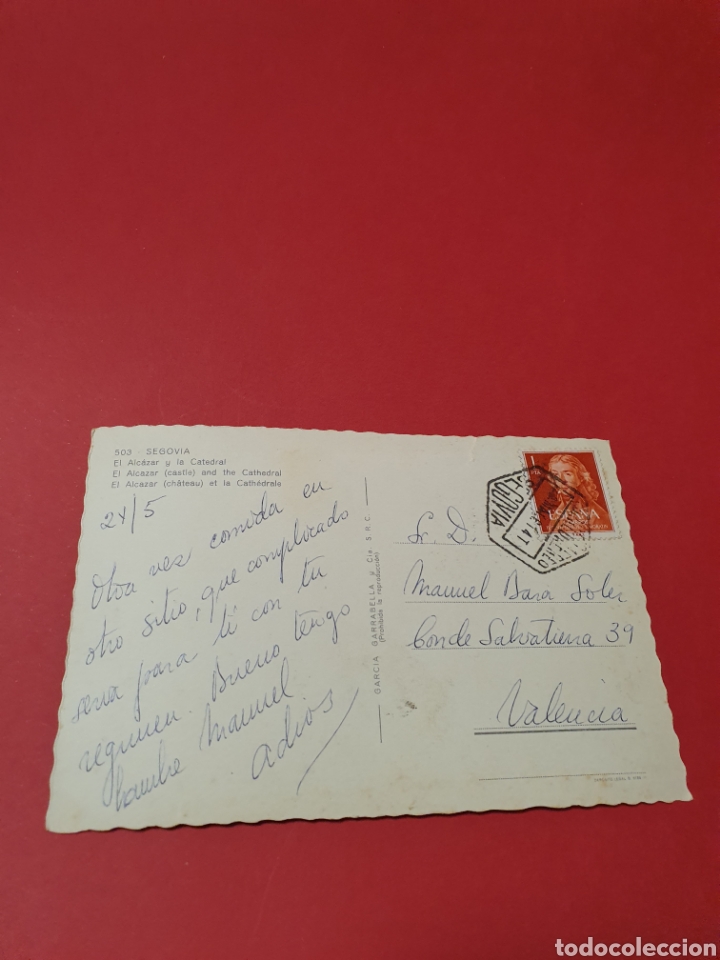 503 - SEGOVIA
El Alcázar y la Catedral
El Alcazar (castle) and the Cathedral
El Alcazar (château) et la Cathédrale
24/5
Otra vez comida en
otro sitio, que complicado
seria para ti con tu
regimen. Bueno tengo
hambre Manuel
adios
GARCIA GARRABELLA y Cía. S.R.C.
(Prohibida la reproducción)
SEGOVIA
ESPAÑA
CORREO AEREO
Sr. D.
Manuel Bara Soler
Conde Salvatierra 39
Valencia
todocoleccion